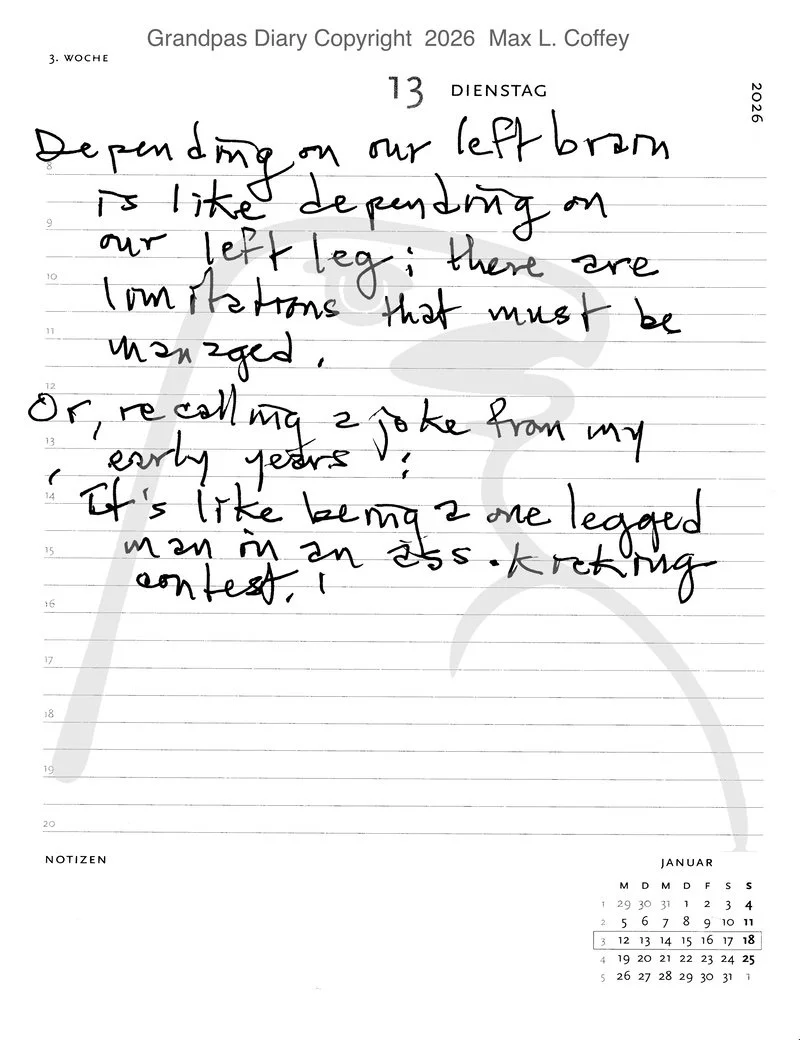 Grandpas Diary Copyright 2026 Max L. Coffey
3. WOCHE
13 DIENSTAG
2026
Depending on our left brain
is like depending on
our left leg; there are
limitations that must be
managed.
Or, recalling a joke from my
early years:
It's like being a one legged
man in an ass-kicking
contest.!
8
9
10
11
12
13
14
15
16
17
18
19
20
NOTIZEN
JANUAR
M D M D F S S
1 29 30 31 1 2 3 4
2 5 6 7 8 9 10 11
3 12 13 14 15 16 17 18
4 19 20 21 22 23 24 25
5 26 27 28 29 30 31 1